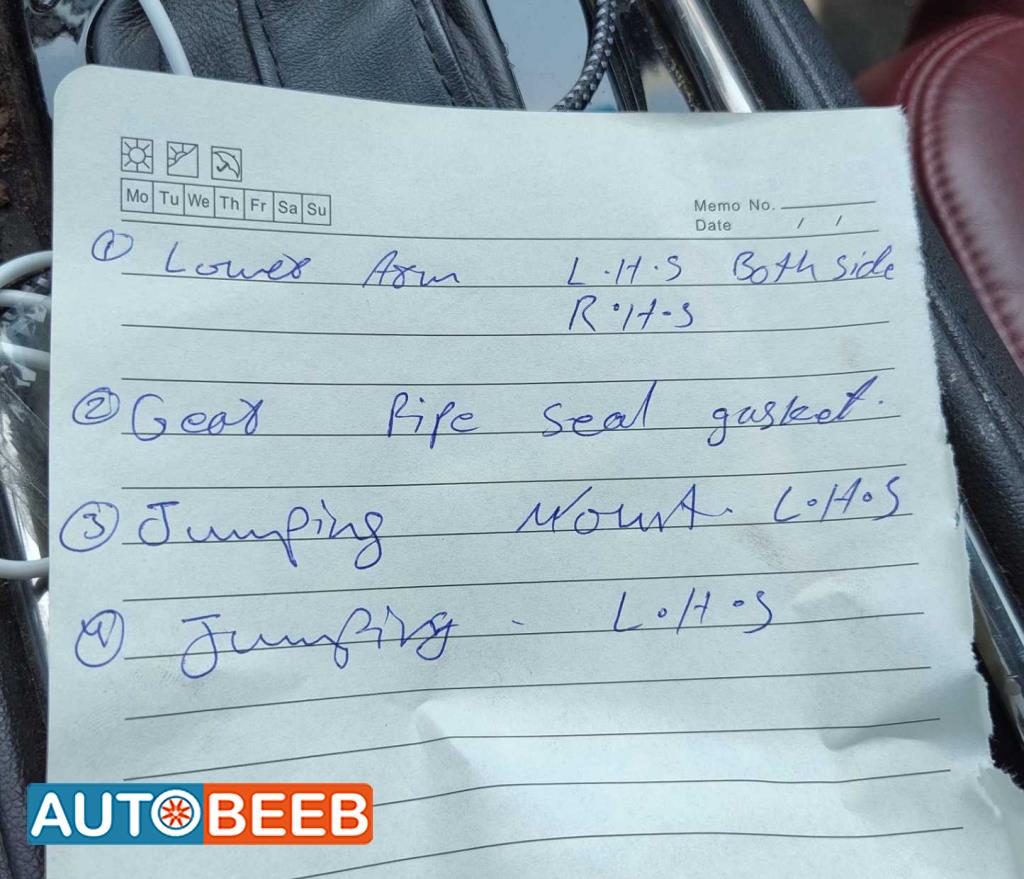 Mo Tu We Th Fr Sa Su
Memo No.
Date / /
① Lower Arm L.H.S Both side
R.H.S
② Gear Pipe seal gasket.
③ Jumping Mount. L.H.S
④ Jumping - L.H.S
AUTOBEEB